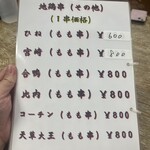 地鶏串(その他)
(1串価格)
ひね(もも串) ¥600
宮崎(もも串) ¥800
合鴨(もも串) ¥800
比内(もも串) ¥800
コーチン(もも串) ¥800
天草大王(もも串) ¥800